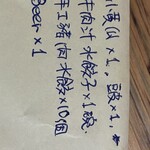 小黃瓜 x1, 頭x1,
牛肉汁水餃子x1碗
手工豬肉水餃x10個
Beer x 1